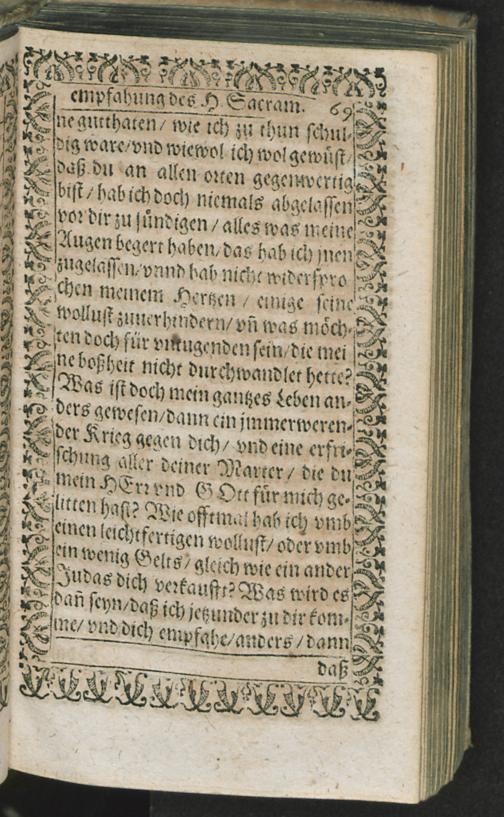 empfahung des H. Sacram. 69
ne gutthaten / wie ich zu thun schul-
dig ware / vnd wiewol ich wol gewüst /
daß du an allen orten gegenwertig
bist / hab ich doch niemals abgelassen
vor dir zu sündigen / alles was meine
Augen begert haben / das hab ich jnen
zugelassen / vnnd hab nicht widerspro
chen meinem Hertzen / einige seine
wollust zuuerhindern / vñ was möch-
ten doch für vntugenden sein / die mei
ne boßheit nicht durchwandlet hette?
Was ist doch mein gantzes Leben an-
ders gewesen / dann ein jmmerweren-
der Krieg gegen dich / vnd eine erfri-
schung aller deiner Marter / die du
mein HErr vnd GOtt für mich ge-
litten hast? Wie offtmal hab ich vmb
einen leichtfertigen wollust / oder vmb
ein wenig Gelts / gleich wie ein ander
Judas dich verkaufft? Was wird es
dañ seyn / daß ich jetzunder zu dir kom-
me / vnd dich empfahe / anders / dann
daß